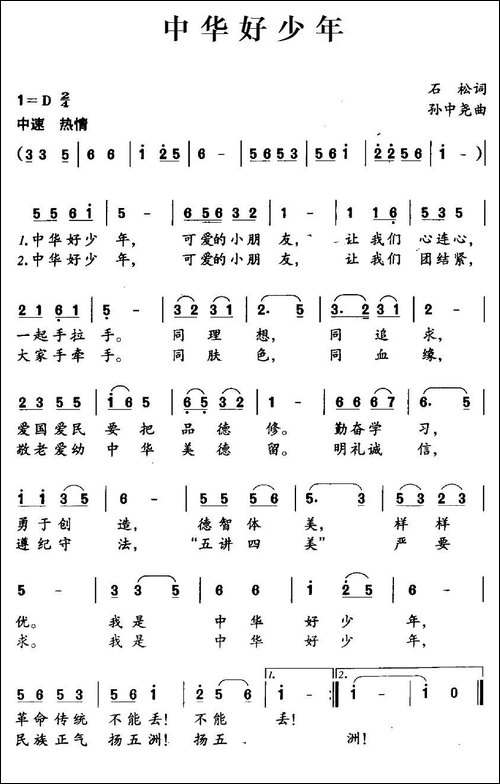 中华好少年
石 松词
1=D 2/4
孙中尧曲
中速 热情
(33 5 | 6 6 | i 25 | 6 - | 5653 | 5653 | 561 | 2256 | i - )
5561 | 5 - | 6563 2 | 1 - | 1 16 | 535 |
1.中华好少 年, 可爱的小朋 友, 让 我们 心连心,
2.中华好少 年, 可爱的小朋 友, 让 我们 团结紧,
2161 | 1 - | 3231 | 2. 5 | 3. 231 | 2 - |
一起手拉 手。 同 理 想, 同 追 求,
大家手牵 手。 同 肤 色, 同 血 缘,
2355 | 165 | 6532 | 1 - | 6667 | 6. 5 |
爱国爱民 要 把 品 德 修。 勤奋学 习,
敬老爱幼 中 华 美 德 留。 明礼诚 信,
i i 35 | 6 - | 5556 | 5. 3 | 5653 |
勇于创 造, 德智体 美, 样 样
遵纪守 法, “五讲四 美” 严 要
5 - | 33 5 | 6 6 | i 25 | 6 - |
优。 我是 中 华 好少 年,
求。 我是 中 华 好少 年,
1. 2.
5653 | 561 | 256 | i - :| i 0 ||
革命传统 不能丢! 不能 丢!
民族正气 扬五洲! 扬五 洲!